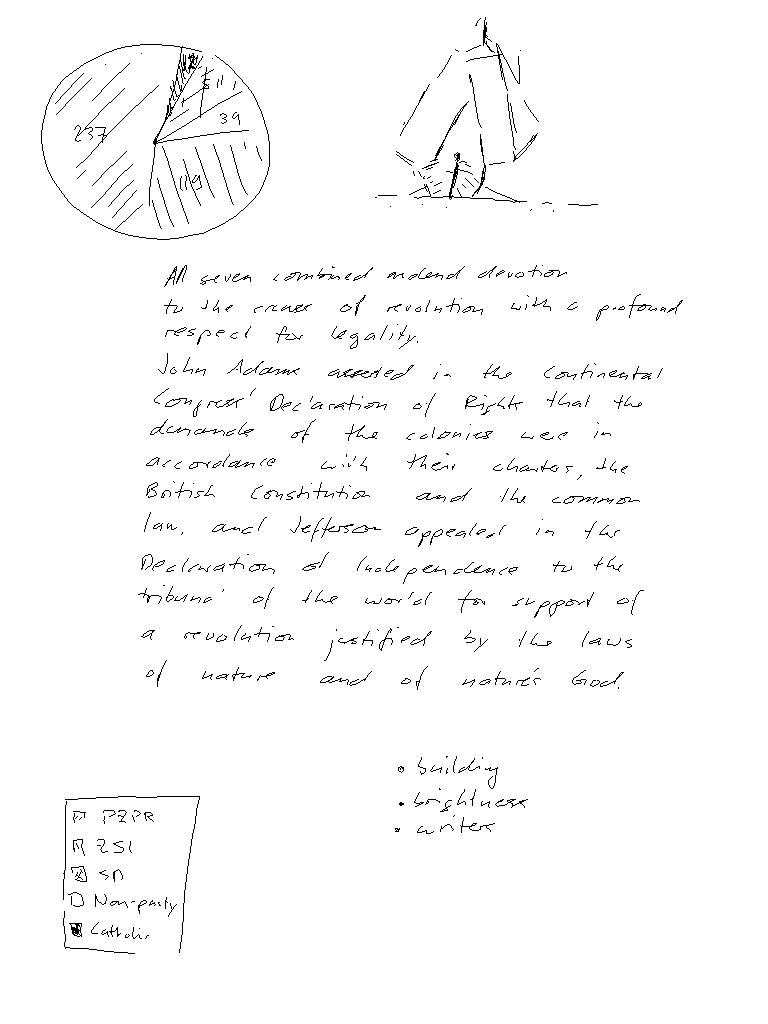 237
39
119
All seven combined ardend devotion
to the cause of revolution with a profound
respect for legality.
John Adams asserted in the Continental
Congress' Declaration of Rights that the
demands of the colonies were in
accordance with their charters, the
British Constitution and the common
law, and Jefferson appealed in the
Declaration of Independence to the
tribunal of the world for support of
a revolution justified by the laws
of nature and of nature's God.
• building
• brightness
• writers
PZPR
ZSL
SD
Non-party
Catholic